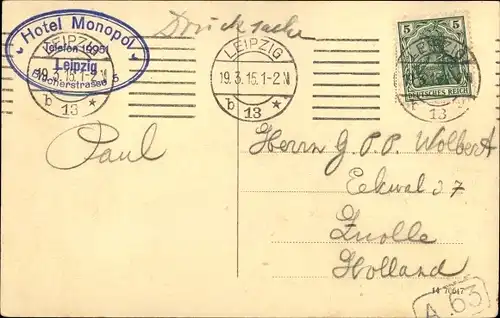 Hotel Monopol
Telefon 19951
Leipzig
Drucksache
LEIPZIG
19.3.15.1-2N
b 13 *
LEIPZIG
19.3.15.1-2N
b 13 *
5 5
DEUTSCHES REICH
13
Paul
Herrn G.P.P. Wolbert
Eekwal 27
Zwolle
Holland
A.63